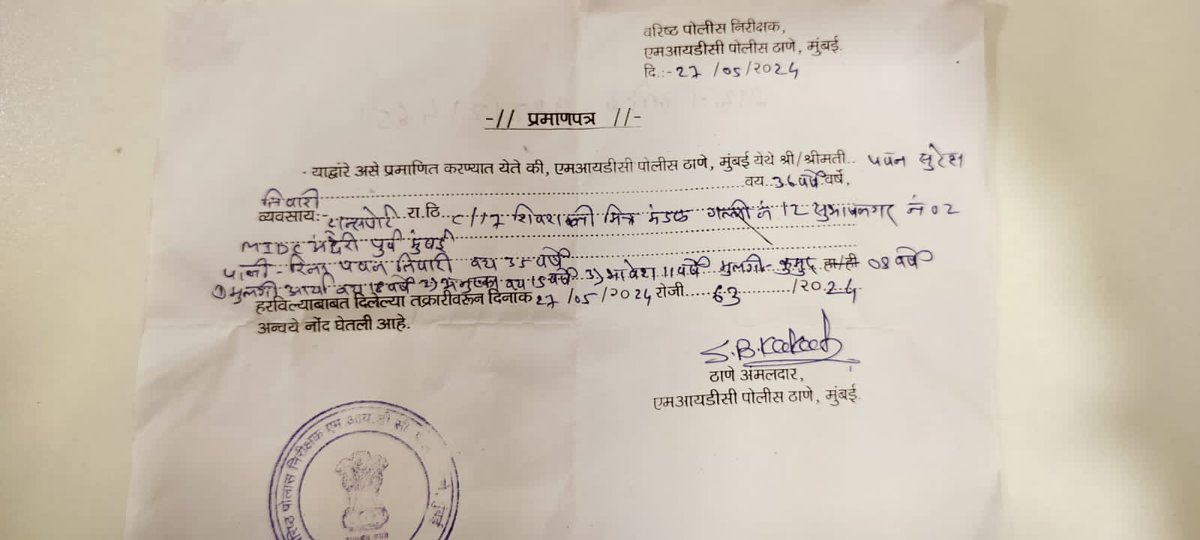 वरिष्ठ पोलीस निरीक्षक,
एमआयडीसी पोलीस ठाणे, मुंबई.
दि.:- 27 /05/2024
-// प्रमाणपत्र //-
- याद्वांरे असे प्रमाणित करण्यात येते की, एमआयडीसी पोलीस ठाणे, मुंबई येथे श्री/श्रीमती.. पवन सुरेश
तिवारी वय. 36 वर्षे वर्षे,
व्यवसाय:- रा.ठि. C/17 शिवशक्ती मित्र मंडळ गल्ली नं 12 सुभाषनगर नं 02
MIDC अंधेरी पुर्व मुंबई
पत्नी - पवन तिवारी वय 35 वर्षे
1) मुलगी आर्या वय वर्षे 2) वय 15 वर्षे 3) भावेश 11 वर्षे मुलगी- कुमुद हा/ही 08 वर्षे
हरविल्याबाबत दिलेल्या तक्रारीवरून दिनांक 27 /05/2024 रोजी..... 63 /2024
अन्वये नोंद घेतली आहे.
ठाणे अमलदार,
एमआयडीसी पोलीस ठाणे, मुंबई.
पोलीस निरीक्षक एम.आय.डी.सी.